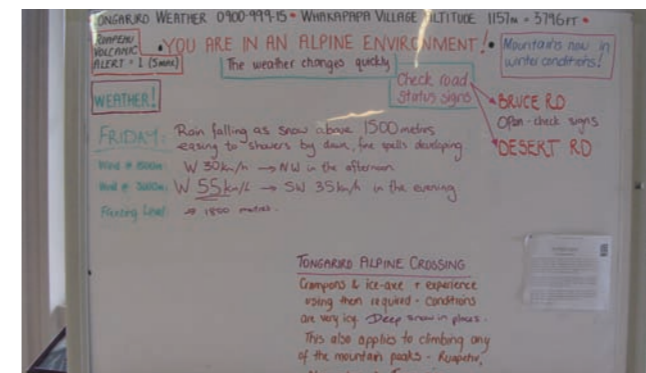 TONGARIRO WEATHER 0900-999-15 • WHAKAPAPA VILLAGE ALTITUDE 1157m = 3796FT •
RUAPEHU
VOLCANIC
ALERT = 1 (5 max)
• YOU ARE IN AN ALPINE ENVIRONMENT! •
Mountains now in
winter conditions!
The weather changes quickly
Check road
status signs
WEATHER!
BRUCE RD
Open - check signs
DESERT RD
FRIDAY:
Rain falling as snow above 1500 metres
easing to showers by dawn, fine spells developing
Wind @ 1500m: W 30km/h → NW in the afternoon
Wind @ 3000m: W 55km/h → SW 35km/h in the evening
Freezing Level: → 1800 metres.
TONGARIRO ALPINE CROSSING
Crampons & ice-axe + experience
using them required - conditions
are very icy. Deep snow in places.
This also applies to climbing any
of the mountain peaks - Ruapehu,